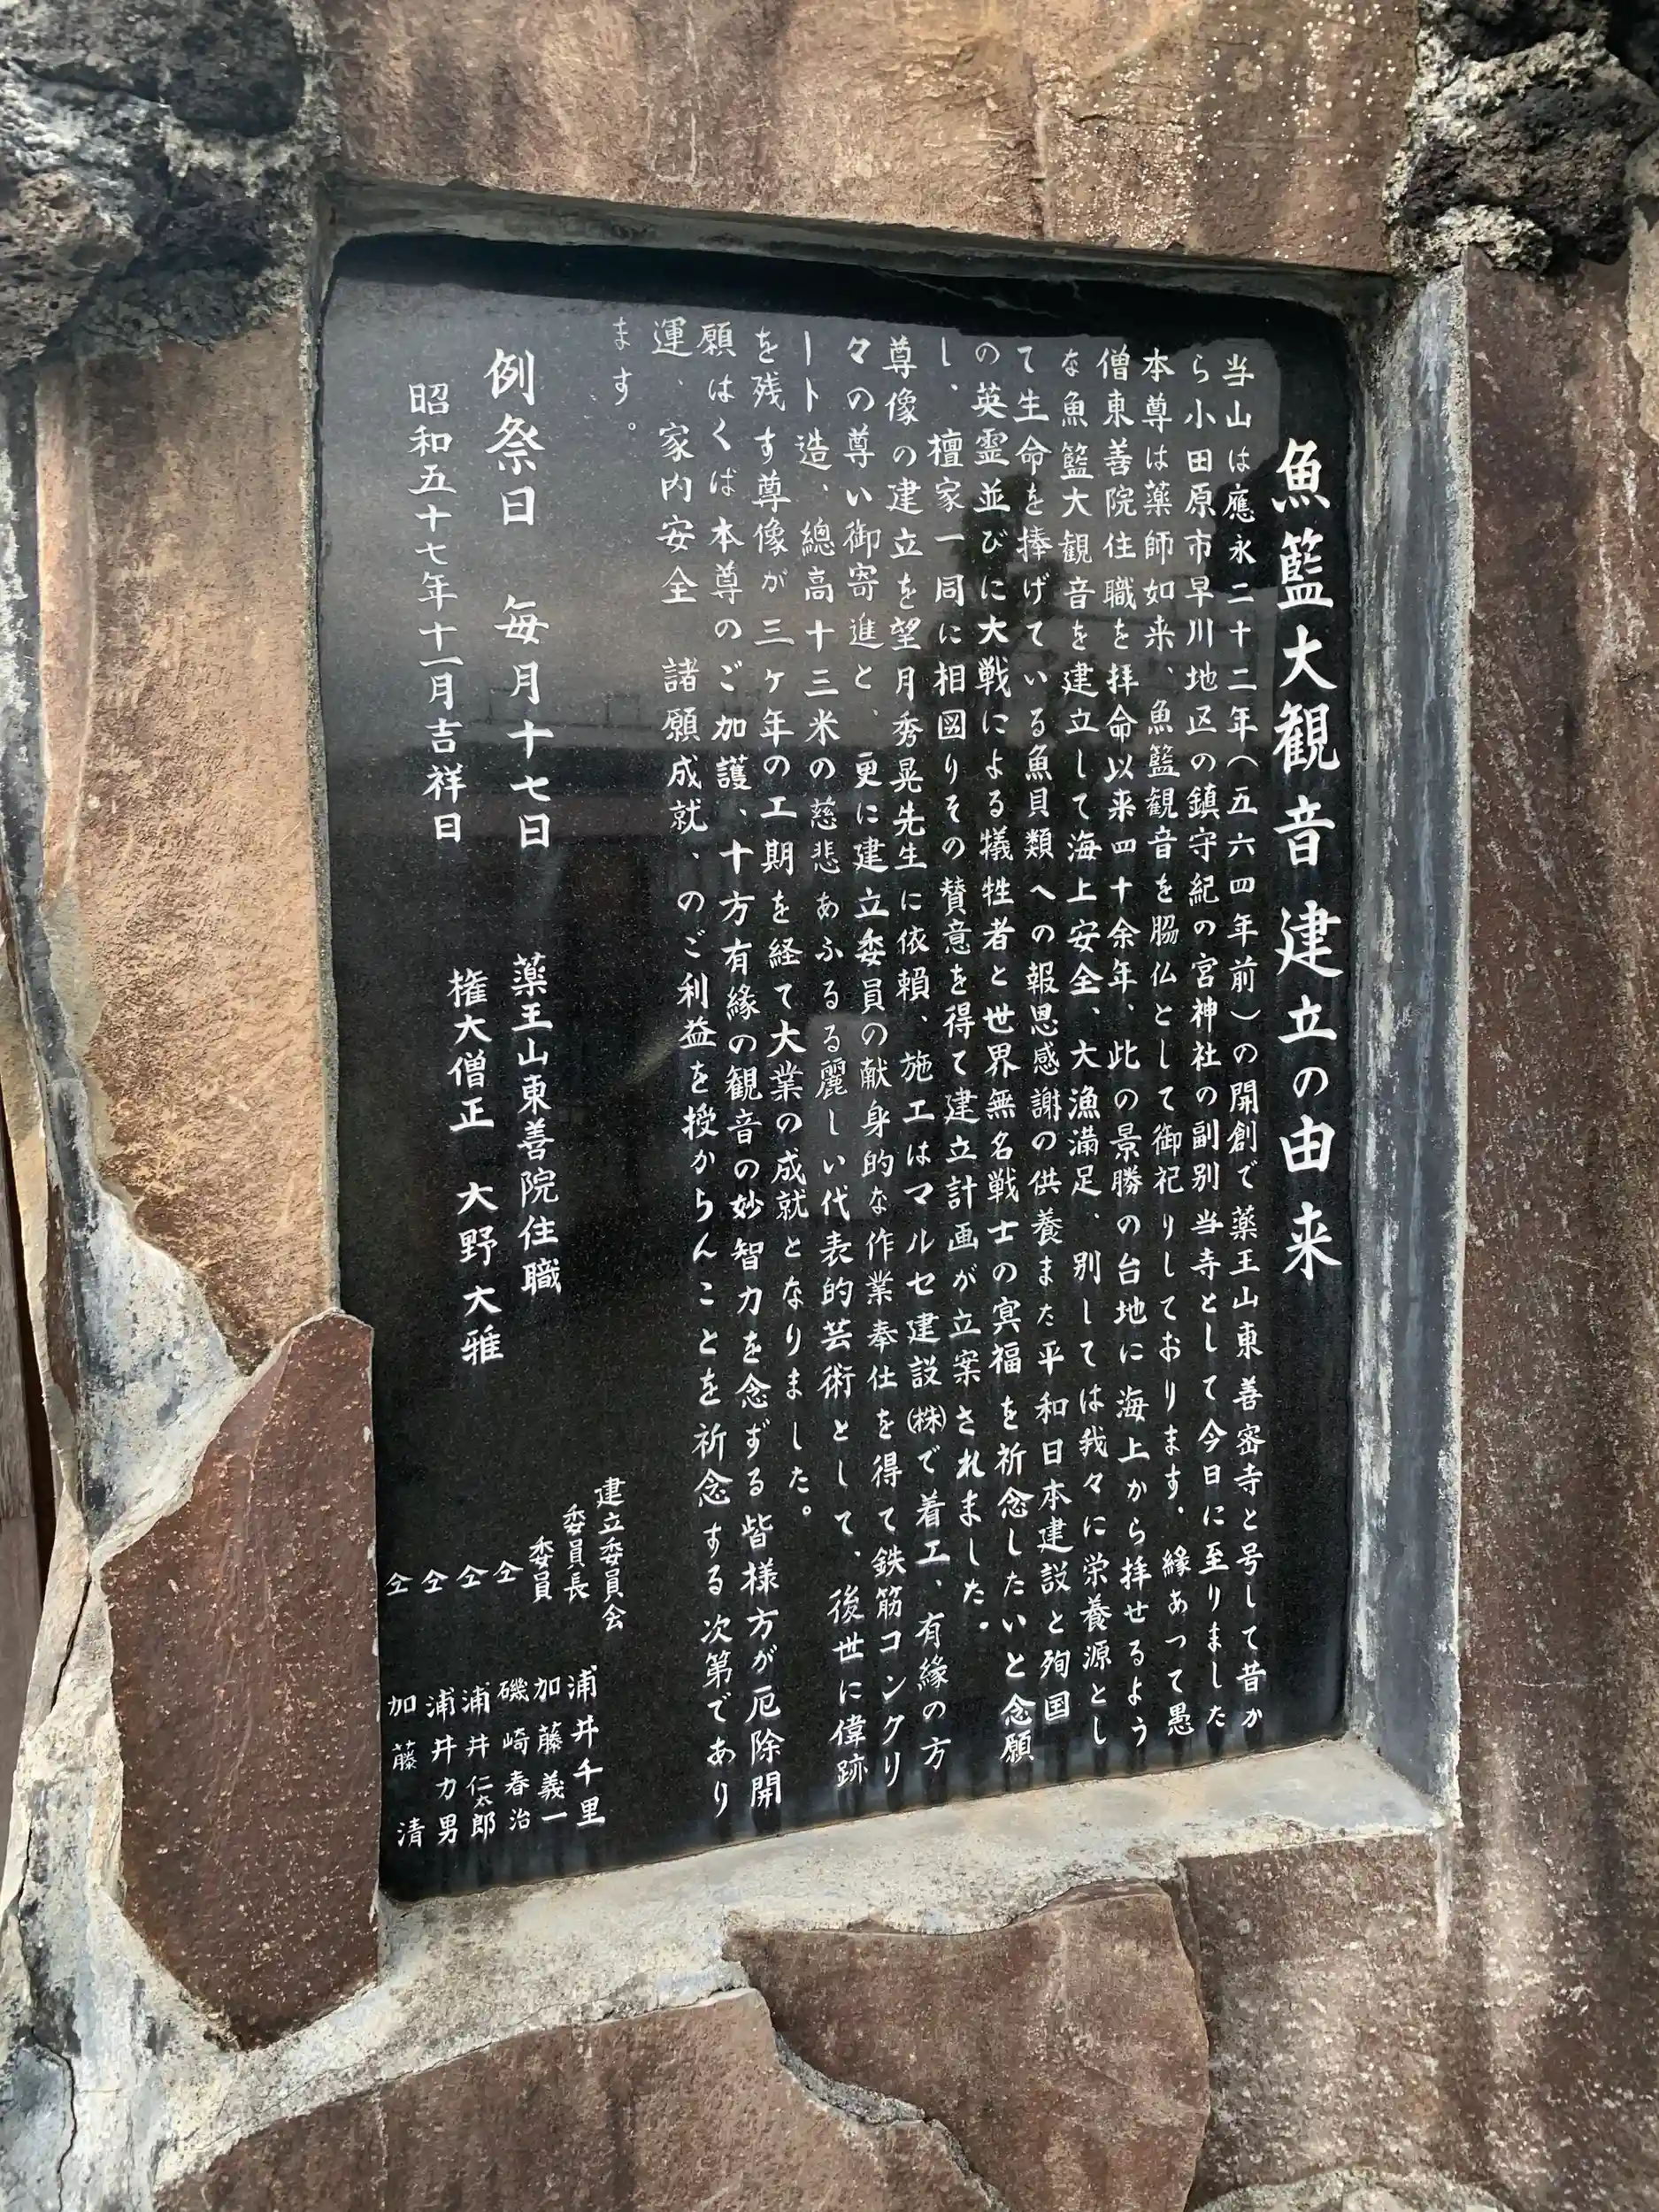 魚籃大観音建立の由来
当山は應永二十二年(五六四年前)の開創で薬王山東善密寺と号して昔か
ら小田原市早川地区の鎮守紀の宮神社の副別当寺として今日に至りました
本尊は薬師如来、魚籃観音を脇仏として御祀りしております。縁あって愚
僧東善院住職を拝命以来四十余年、此の景勝の台地に海上から拝せるよう
な魚籃大観音を建立して海上安全、大漁満足、別しては我々に栄養源とし
て生命を捧げている魚貝類への報恩感謝の供養また平和日本建設と殉国
の英霊並びに大戦による犠牲者と世界無名戦士の冥福を祈念したいと念願
し、檀家一同に相図りその賛意を得て建立計画が立案されました。
尊像の建立を望月秀晃先生に依頼、施工はマルセ建設㈱で着工、有縁の方
々の尊い御寄進と、更に建立委員の献身的な作業奉仕を得て鉄筋コンクリ
ート造、總高十三米の慈悲あふるる麗しい代表的芸術として、後世に偉跡
を残す尊像が三ヶ年の工期を経て大業の成就となりました。
願はくば本尊のご加護、十方有縁の観音の妙智力を念ずる皆様方が厄除開
運、家内安全 諸願成就、のご利益を授からんことを祈念する次第であり
ます。
建立委員会
委員長 浦井千里
委員 加藤義一
仝 磯崎春治
仝 浦井仁太郎
仝 浦井力男
仝 加藤清
例祭日 毎月十七日
薬王山東善院住職
昭和五十七年十一月吉祥日
権大僧正 大野大雅